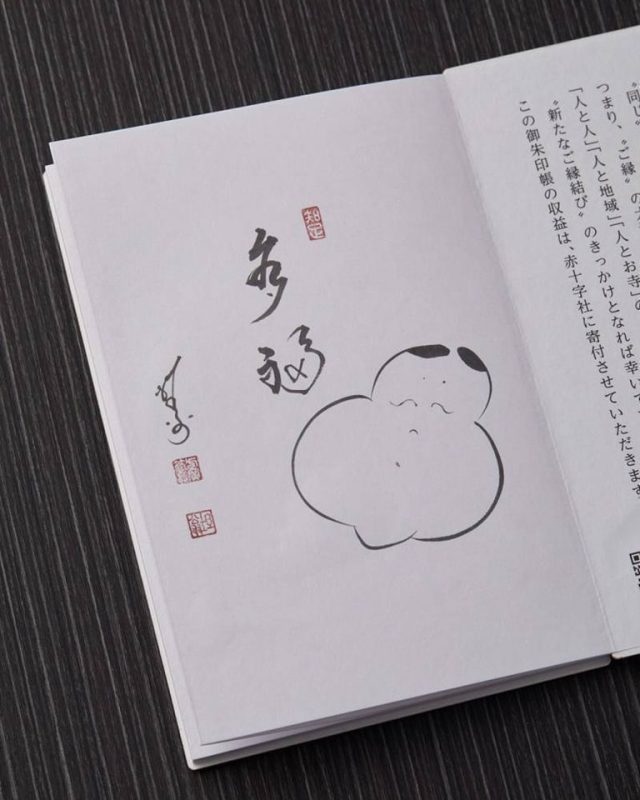 “同じ”
つまり、“ご縁”の
「人と人」「人と地域」「人とお寺」の
“新たなご縁結び”のきっかけとなれば幸いで
この御朱印帳の収益は、赤十字社に寄付させていただきます
知足
多福